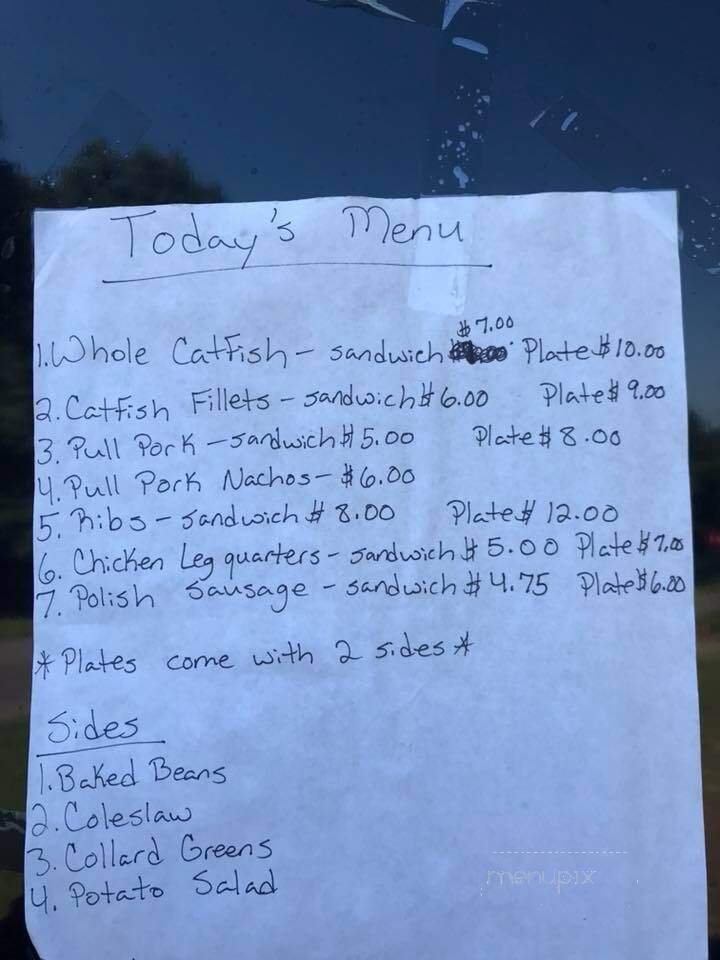 Today's Menu
$7.00
1. Whole Catfish - sandwich Plate $10.00
2. Catfish Fillets - sandwich $6.00 Plate $9.00
3. Pull Pork - sandwich $5.00 Plate $8.00
4. Pull Pork Nachos - $6.00
5. Ribs - sandwich $8.00 Plate $12.00
6. Chicken Leg quarters - sandwich $5.00 Plate $7.00
7. Polish Sausage - sandwich $4.75 Plate $6.00
* Plates come with 2 sides *
Sides
1. Baked Beans
2. Coleslaw
3. Collard Greens
4. Potato Salad
menupix